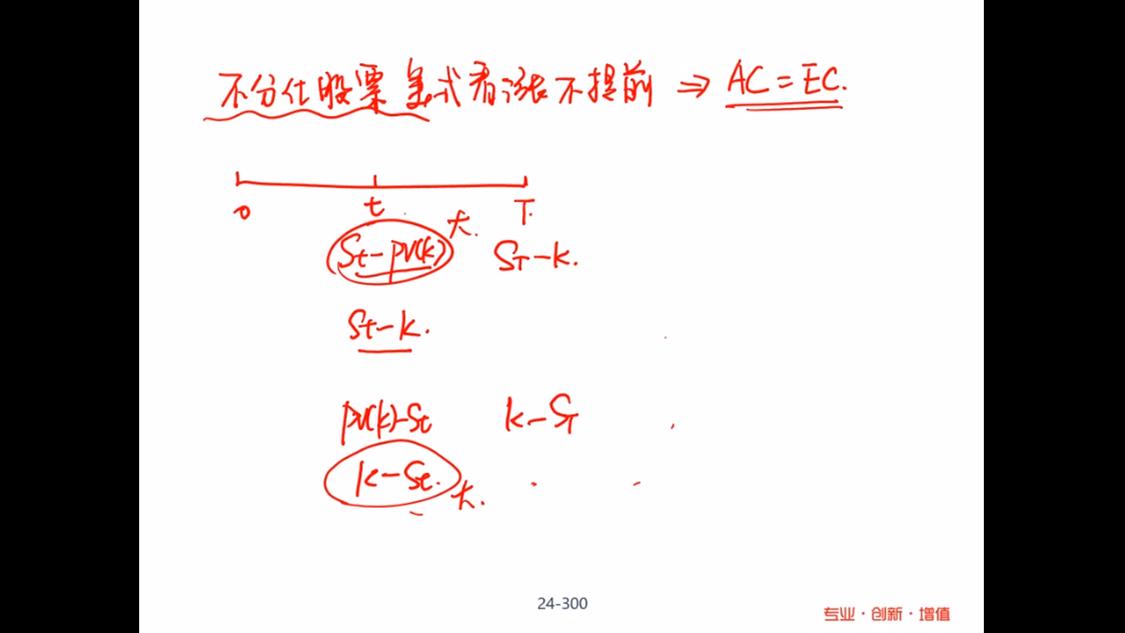 不分红股票 美式看涨不提前 ⇒ AC = EC.
0 t T.
St-PV(K) 大. ST-K.
St-K.
PV(K)-St K-ST
K-St. 大.
24-300
专业·创新·增值